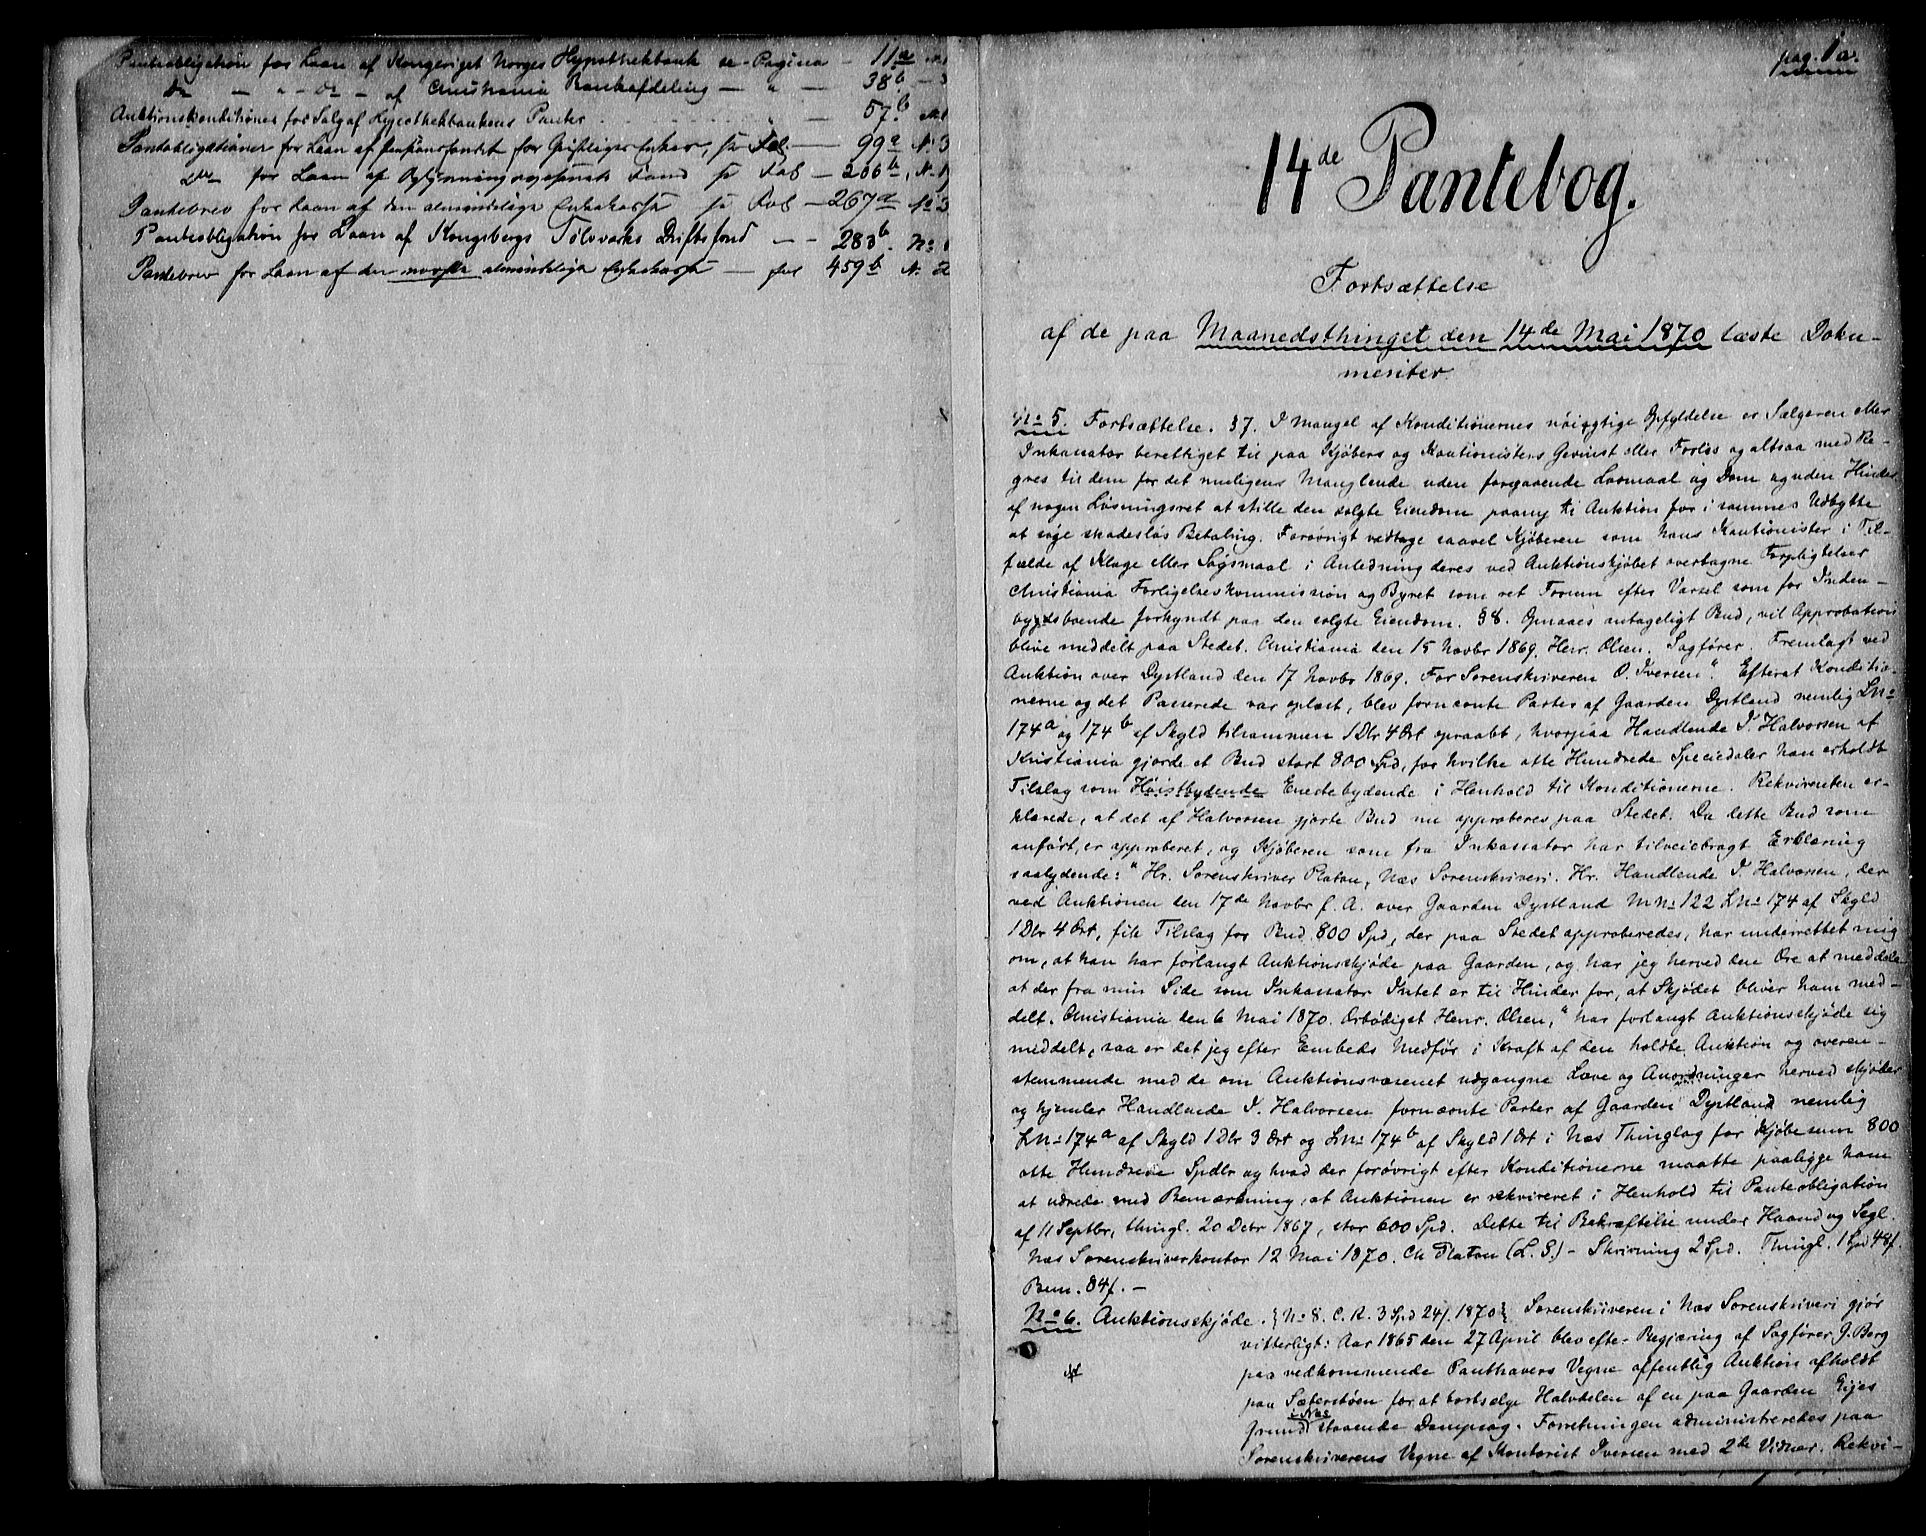 Panteobligation for Laan af Kongeriget Norges Hypothekbank se Pagina — 11a N.1
do — " — do — af Christiania Bankafdeling — " — 38b — 3
Auktionskonditioner for Salg af Hypothekbankens Panter — 57b N.1
Panteobligationer for Laan af Pensionsfondet for Geistliges Enker, se Fol. — 99a N. 3
do for Laan af Oplysningsvæsenets Fond se Fol — 206b, N. 1
Pantebrev for Laan af den almindelige Enkekasse se Fol — 267a No 3
Panteobligation for Laan af Kongsbergs Sølvværks Driftsfond — — 283b. No 1
Pantebrev for Laan af den norske almindelige Enkekasse — fol 459b N. 2
pag. 1a.
14de Pantebog.
Fortsættelse
af de paa Maanedsthinget den 14de Mai 1870 læste Doku-
menter.
No 5. Fortsættelse. §7. I Mangel af Konditionernes nøiagtige Opfyldelse er Sælgeren eller
Inkassator berettiget til paa Kjøbers og Kautionisters Gevinst eller Forlis og altsaa med Re-
gres til dem for det muligens Manglende uden foregaaende Lovmaal og Dom og uden Hinder
af nogen Løsningsret at stille den solgte Eiendom paany til Auktion for i sammes Udbytte
at søge skadesløs Betaling. Forøvrigt vedtage saavel Kjøberen som hans Kautionister i Til-
fælde af Klage eller Søgsmaal i Anledning deres ved Auktionskjøbet overtagne Forpligtelser
Christiania Forligelseskommission og Byret som ret Forum efter Varsel som for Inden-
bygdsboende forkyndt paa den solgte Eiendom. §8. Opnaaes antageligt Bud, vil Approbation
blive meddelt paa Stedet. Christiania den 15 Novbr 1869. Henr. Olsen. Sagfører. Fremlagt ved
Auktion over Dystland den 17 Novbr 1869. For Sorenskriveren O. Iversen". Efterat Konditio-
nerne og det Passerede var oplæst, blev fornævnte Parter af Gaarden Dystland nemlig LNo
174a og 174b af Skyld tilsammen 1 Dlr 4 Ort opraabt, hvorpaa Handlende I. Halvorsen af
Kristiania gjorde et Bud stort 800 Spd, for hvilke otte Hundrede Speciedaler han erholdt
Tilslag som Høistbydende Enestebydende i Henhold til Konditionerne. Rekvirenten er-
klærede, at det af Halvorsen gjorte Bud nu approberes paa Stedet. Da dette Bud som
anført, er approberet, og Kjøberen som fra Inkassator har tilveiebragt Erklæring
saalydende: "Hr. Sorenskriver Platou, Næs Sorenskriveri. Hr. Handlende I. Halvorsen, der
ved Auktionen den 17de Novbr f. A. over Gaarden Dystland MNo 122 LNo 174 af Skyld
1 Dlr 4 Ort, fik Tilslag for Bud 800 Spd, der paa Stedet approberedes, har underrettet mig
om, at han har forlangt Auktionsskjøde paa Gaarden, og har jeg herved den Ære at meddele
at der fra min Side som Inkassator Intet er til Hinder for, at Skjødet bliver ham med-
delt. Christiania den 6 Mai 1870. Ærbødigst Henr. Olsen," har forlangt Auktionsskjøde sig
meddelt, saa er det jeg efter Embeds Medfør i Kraft af den holdte Auktion og overen-
stemmende med de om Auktionsvæsenet udgangne Love og Anordninger herved skjøder
og hjemler Handlende I. Halvorsen fornævnte Parter af Gaarden Dystland nemlig
LNo 174a af Skyld 1 Dlr 3 Ort og LNo 174b af Skyld 1 Ort i Næs Thinglag for Kjøbesum 800
otte Hundrede Spdlr og hvad der forøvrigt efter Konditionerne maatte paaligge ham
at udrede med Bemærkning, at Auktionen er rekvireret i Henhold til Panteobligation
af 11 Septbr, thingl. 20 Debr 1867, stor 600 Spd. Dette til Bekræftelse under Haand og Segl.
Næs Sorenskriverkontor 12 Mai 1870. Ch Platou (L. S.) - Skrivning 2 Spd. Thingl. 1 Spd 48ſ.
Bem. 84ſ. —
No 6. Auktionsskjøde. { No 8. C. R. 3 Spd 24ſ. 1870 } Sorenskriveren i Næs Sorenskriveri gjør
vitterligt: Aar 1865 den 27 April blev efter Begjæring af Sagfører J. Borg
paa vedkommende Panthavers Vegne offentlig Auktion afholdt
paa Sæterstøen for at bortselge Halvdelen af en paa Gaarden Eijes
Grund i Næs staaende Dampsag. Forretningen administreredes paa
Sorenskriverens Vegne af Kontorist Iversen med 2de Vidner. Rekvi-